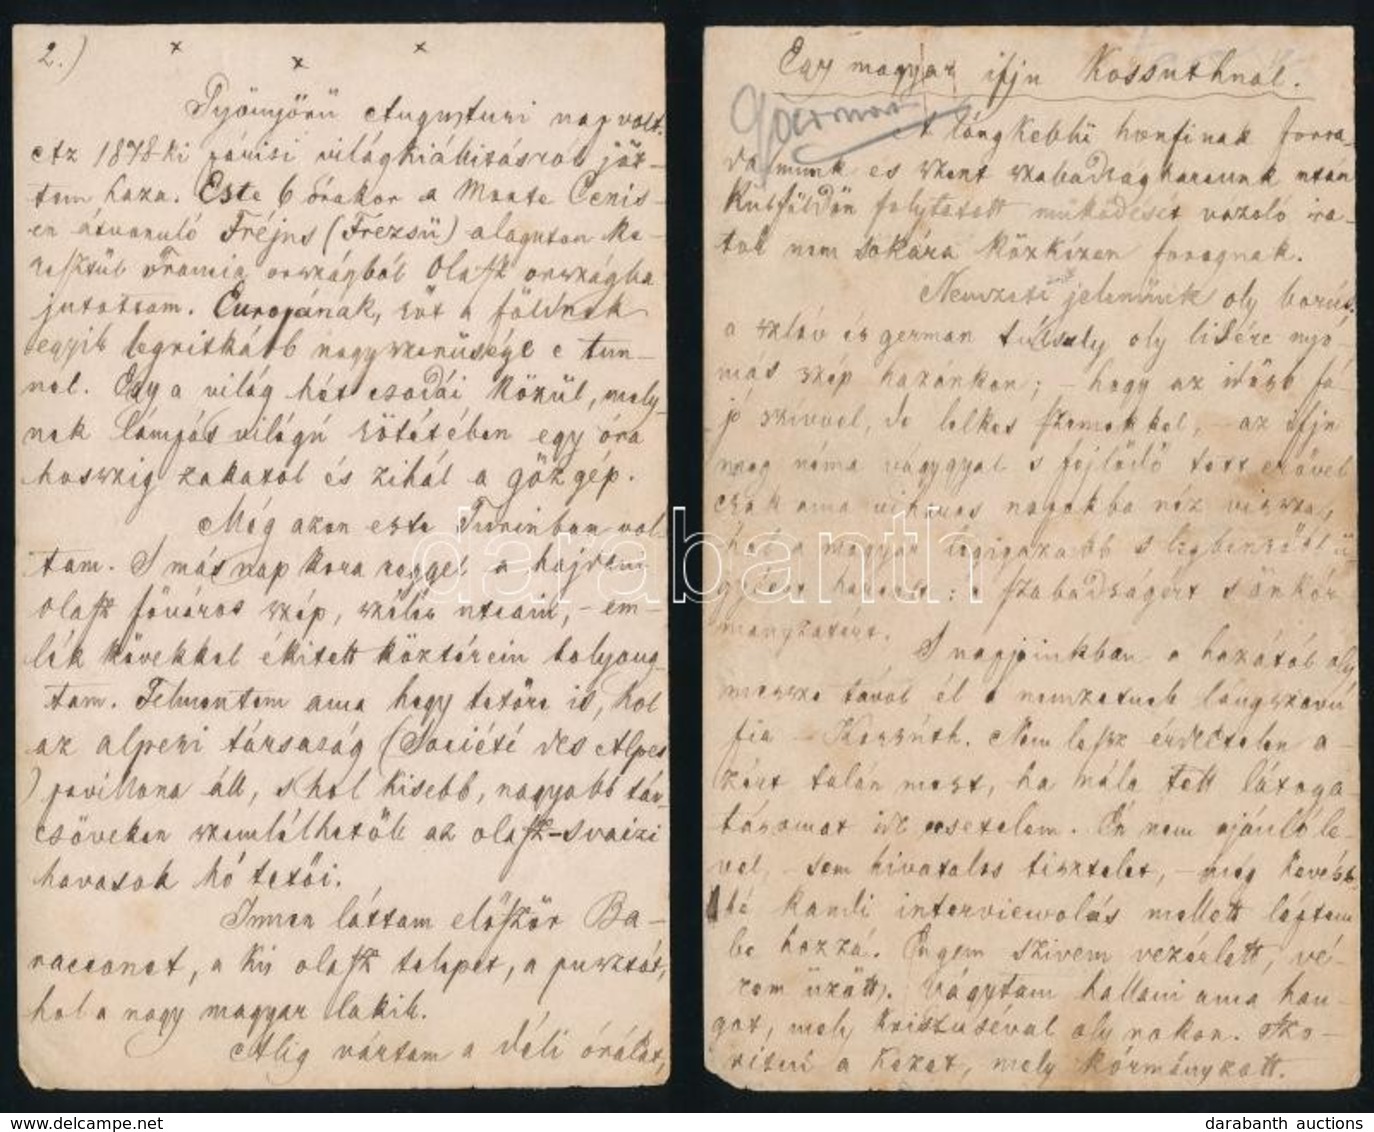 2.)
Gyönyörű Augusturi nap volt.
Az 1878-ki párisi világkiállitásról jöt-
tem haza. Este 6 órakor a Monte Cenis-
en átvonuló Fréjus (Frézsü) alaguton ke-
resztül Francia országból Olasz országba
jutottam. Európának, sőt a földnek
egyik legritkább nagyszerüsége e tun-
nel. Egy a világ hét csodái közül, mely-
nek lámpás világú sötétében egy óra
hosszig zakatol és zihál a gőzgép.
Még azon este Turinban vol-
tam. S másnap kora reggel a hajdani
olasz főváros szép, széles utcáin, - em-
lék kövekkel ékitett köztérein bolyong-
tam. Felmentem ama hegy tetőre is, hol
az alpesi társaság (Société des Alpes
) pavillona áll, s hol kisebb, nagyobb táv-
csöveken szemlélhetők az olasz-svaizi
havasok hó tetői.
Innen láttam először Ba-
racconet, a kis olasz telepet, a pusztát,
hol a nagy magyar lakik.
Alig vártam a déli órákat,
Egy magyar ifju Kossuthnál.
A lángkeblü honfinak forra-
dalmunk es szent szabadságharcunk után
Külföldön folytatott müködését vazoló ira-
tok nem sokára közkézen forognak.
Nemzeti jelenünk oly borús,
a szláv és german túlsuly oly lidérc nyo-
más szép hazánkon; - hogy az idősb fá-
jó szívvel, de lelkes szemekkel, - az ifju
meg néma vágygyal s fejlődő tett erővel
csak ama viharos napokba néz vissza,
hol a magyar legigazabb s legbensőbb ü-
gyéért harcolt: a szabadságért s önkor-
mányzatért.
S napjainkban a hazától oly
messze távol él a nemzetnek lángszavú
fia - Kossuth. Nem lesz érdektelen a-
zért talán most, ha nála tett látoga-
tásomat ide ecsetelem. Én nem ajánló le-
vel, - sem hivatalos tisztelet, - még kevésb-
bé kandi interviewolás mellett léptem
be hozzá. Engem szivem vezérlett, vé-
rem üzött. Vágytam hallani ama han-
got, mely Krisztuséval oly rokon. Szo-
ritni a kezet, mely kormányzott.
darabanth
darabanth auctions